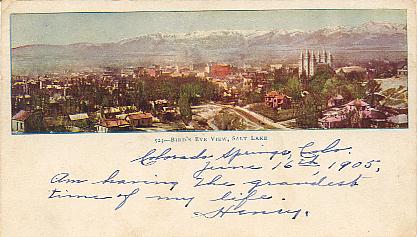 521—BIRD'S EYE VIEW, SALT LAKE
Colorado Springs, Colo.
June 16th, 1905.
Am having the grandest
time of my life.
Henry.